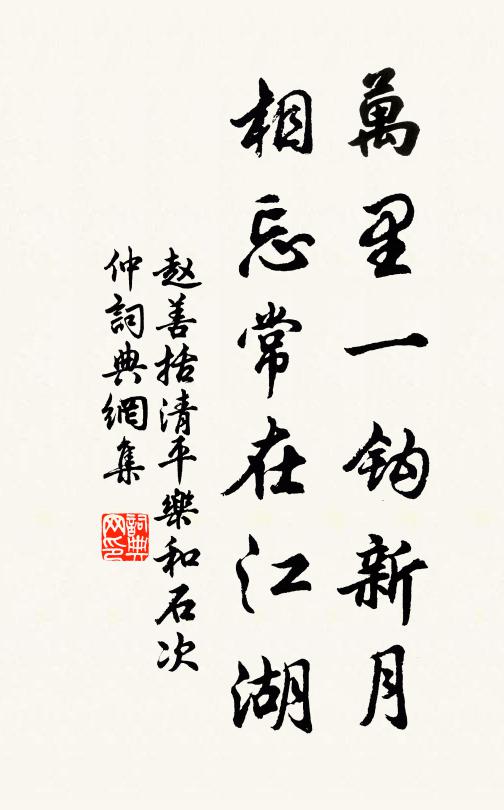 萬里一鈎新月
相忘常在江湖
赵善括清平樂和石次
仲詞典網集
詞典网印